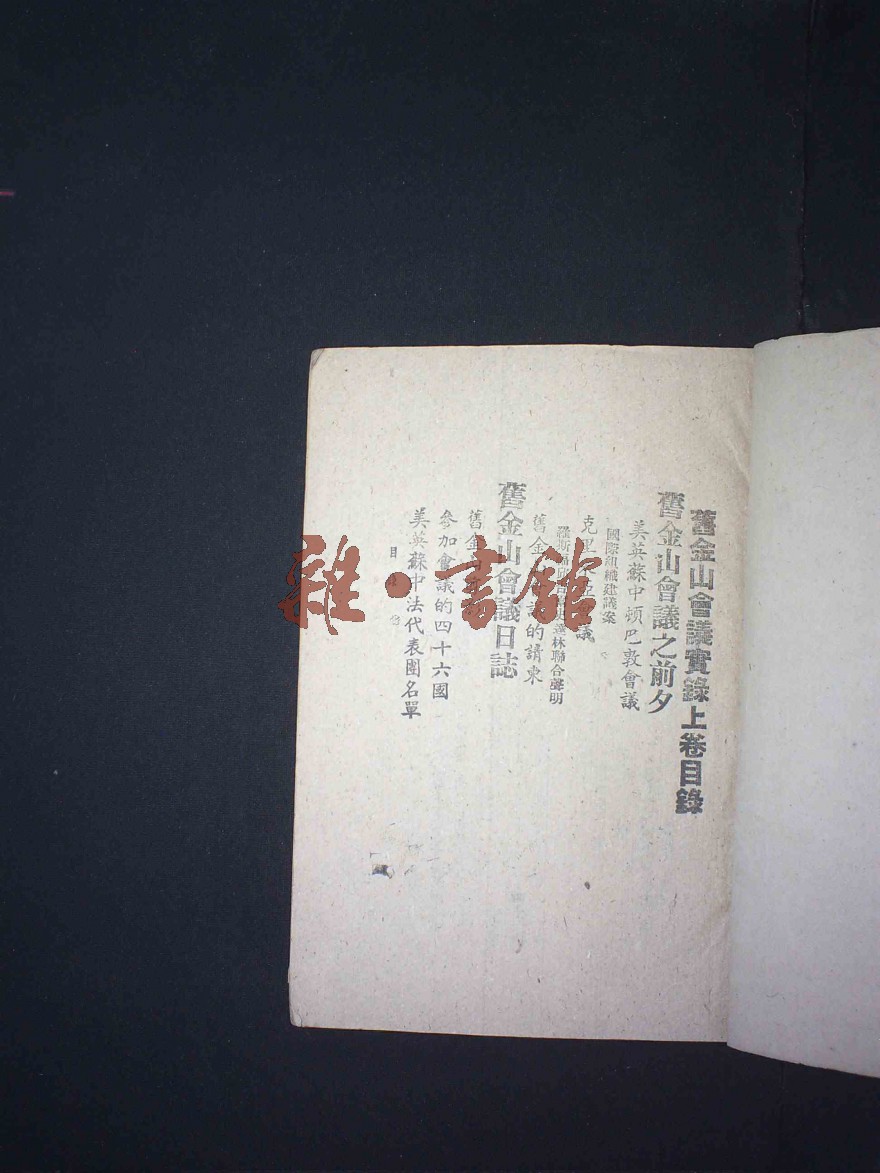 舊金山會議實錄上卷目錄
舊金山會議之前夕
美英蘇中頓巴敦會議
國際組織建議案
克里米亞會議
羅斯福 林聯合聲明
舊金山會議的請柬
舊金山會議日誌
舊金山
參加會議的四十六國
美英蘇中法代表團名單
目錄
雜·書館